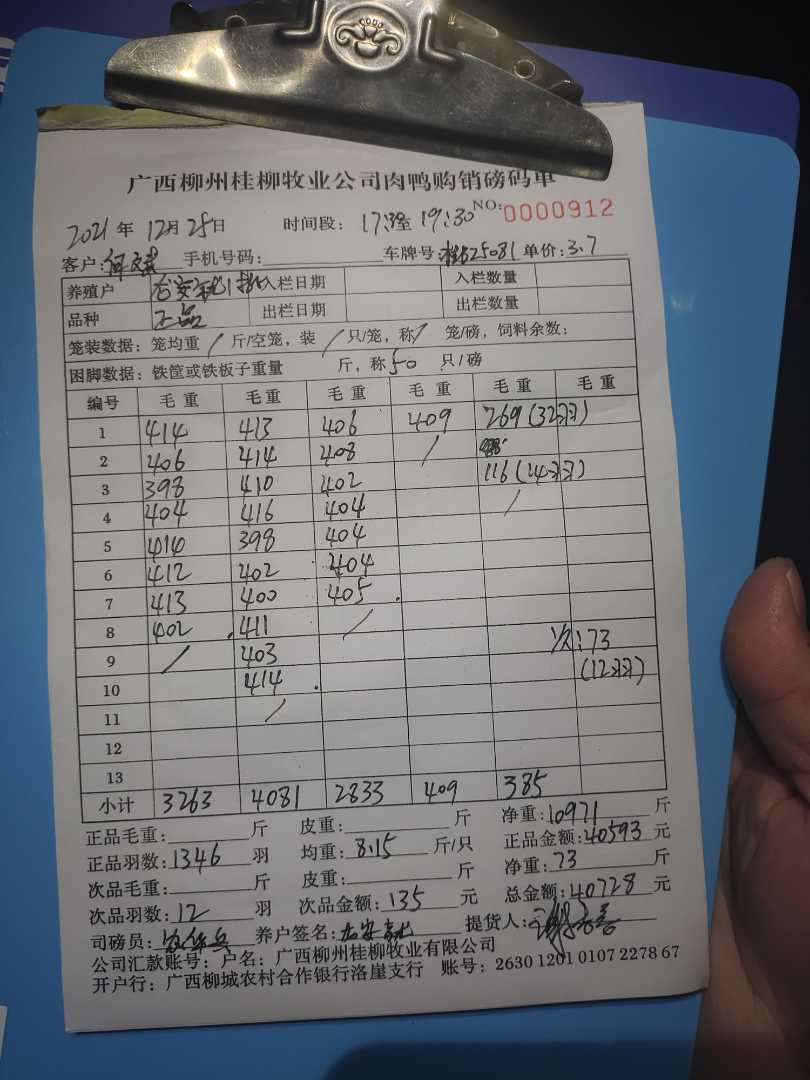 广西柳州桂柳牧业公司肉鸭购销磅码单
2021年 12月 25日 时间段: 17:30至 19:30 NO: 0000912
客户: 手机号码: 车牌号: 25081 单价: 3.7
养殖户 入栏日期 入栏数量
品种 正品 出栏日期 出栏数量
笼装数据: 笼均重 / 斤/空笼, 装 / 只/笼, 称 / 笼/磅, 饲料余数:
困脚数据: 铁筐或铁板子重量 斤, 称50 只/磅
编号 毛重 毛重 毛重 毛重 毛重 毛重
1 414 413 406 409 269 (32羽)
2 406 414 408 /
3 398 410 402 116 (14羽)
4 404 416 404 /
5 414 398 404
6 412 402 404
7 413 400 405.
8 402. 411 / 次: 73
9 / 403 (12羽)
10 414.
11 /
12
13
小计 3263 4081 2833 409 385
正品毛重: 斤 皮重: 斤 净重: 10971 斤
正品羽数: 1346 羽 均重: 8.15 斤/只 正品金额: 40593 元
次品毛重: 斤 皮重: 斤 净重: 73 斤
次品羽数: 12 羽 次品金额: 135 元 总金额: 40728 元
司磅员: 养户签名: 提货人:
公司汇款账号: 户名: 广西柳州桂柳牧业有限公司
开户行: 广西柳城农村合作银行洛崖支行 账号: 2630 1201 0107 2278 67